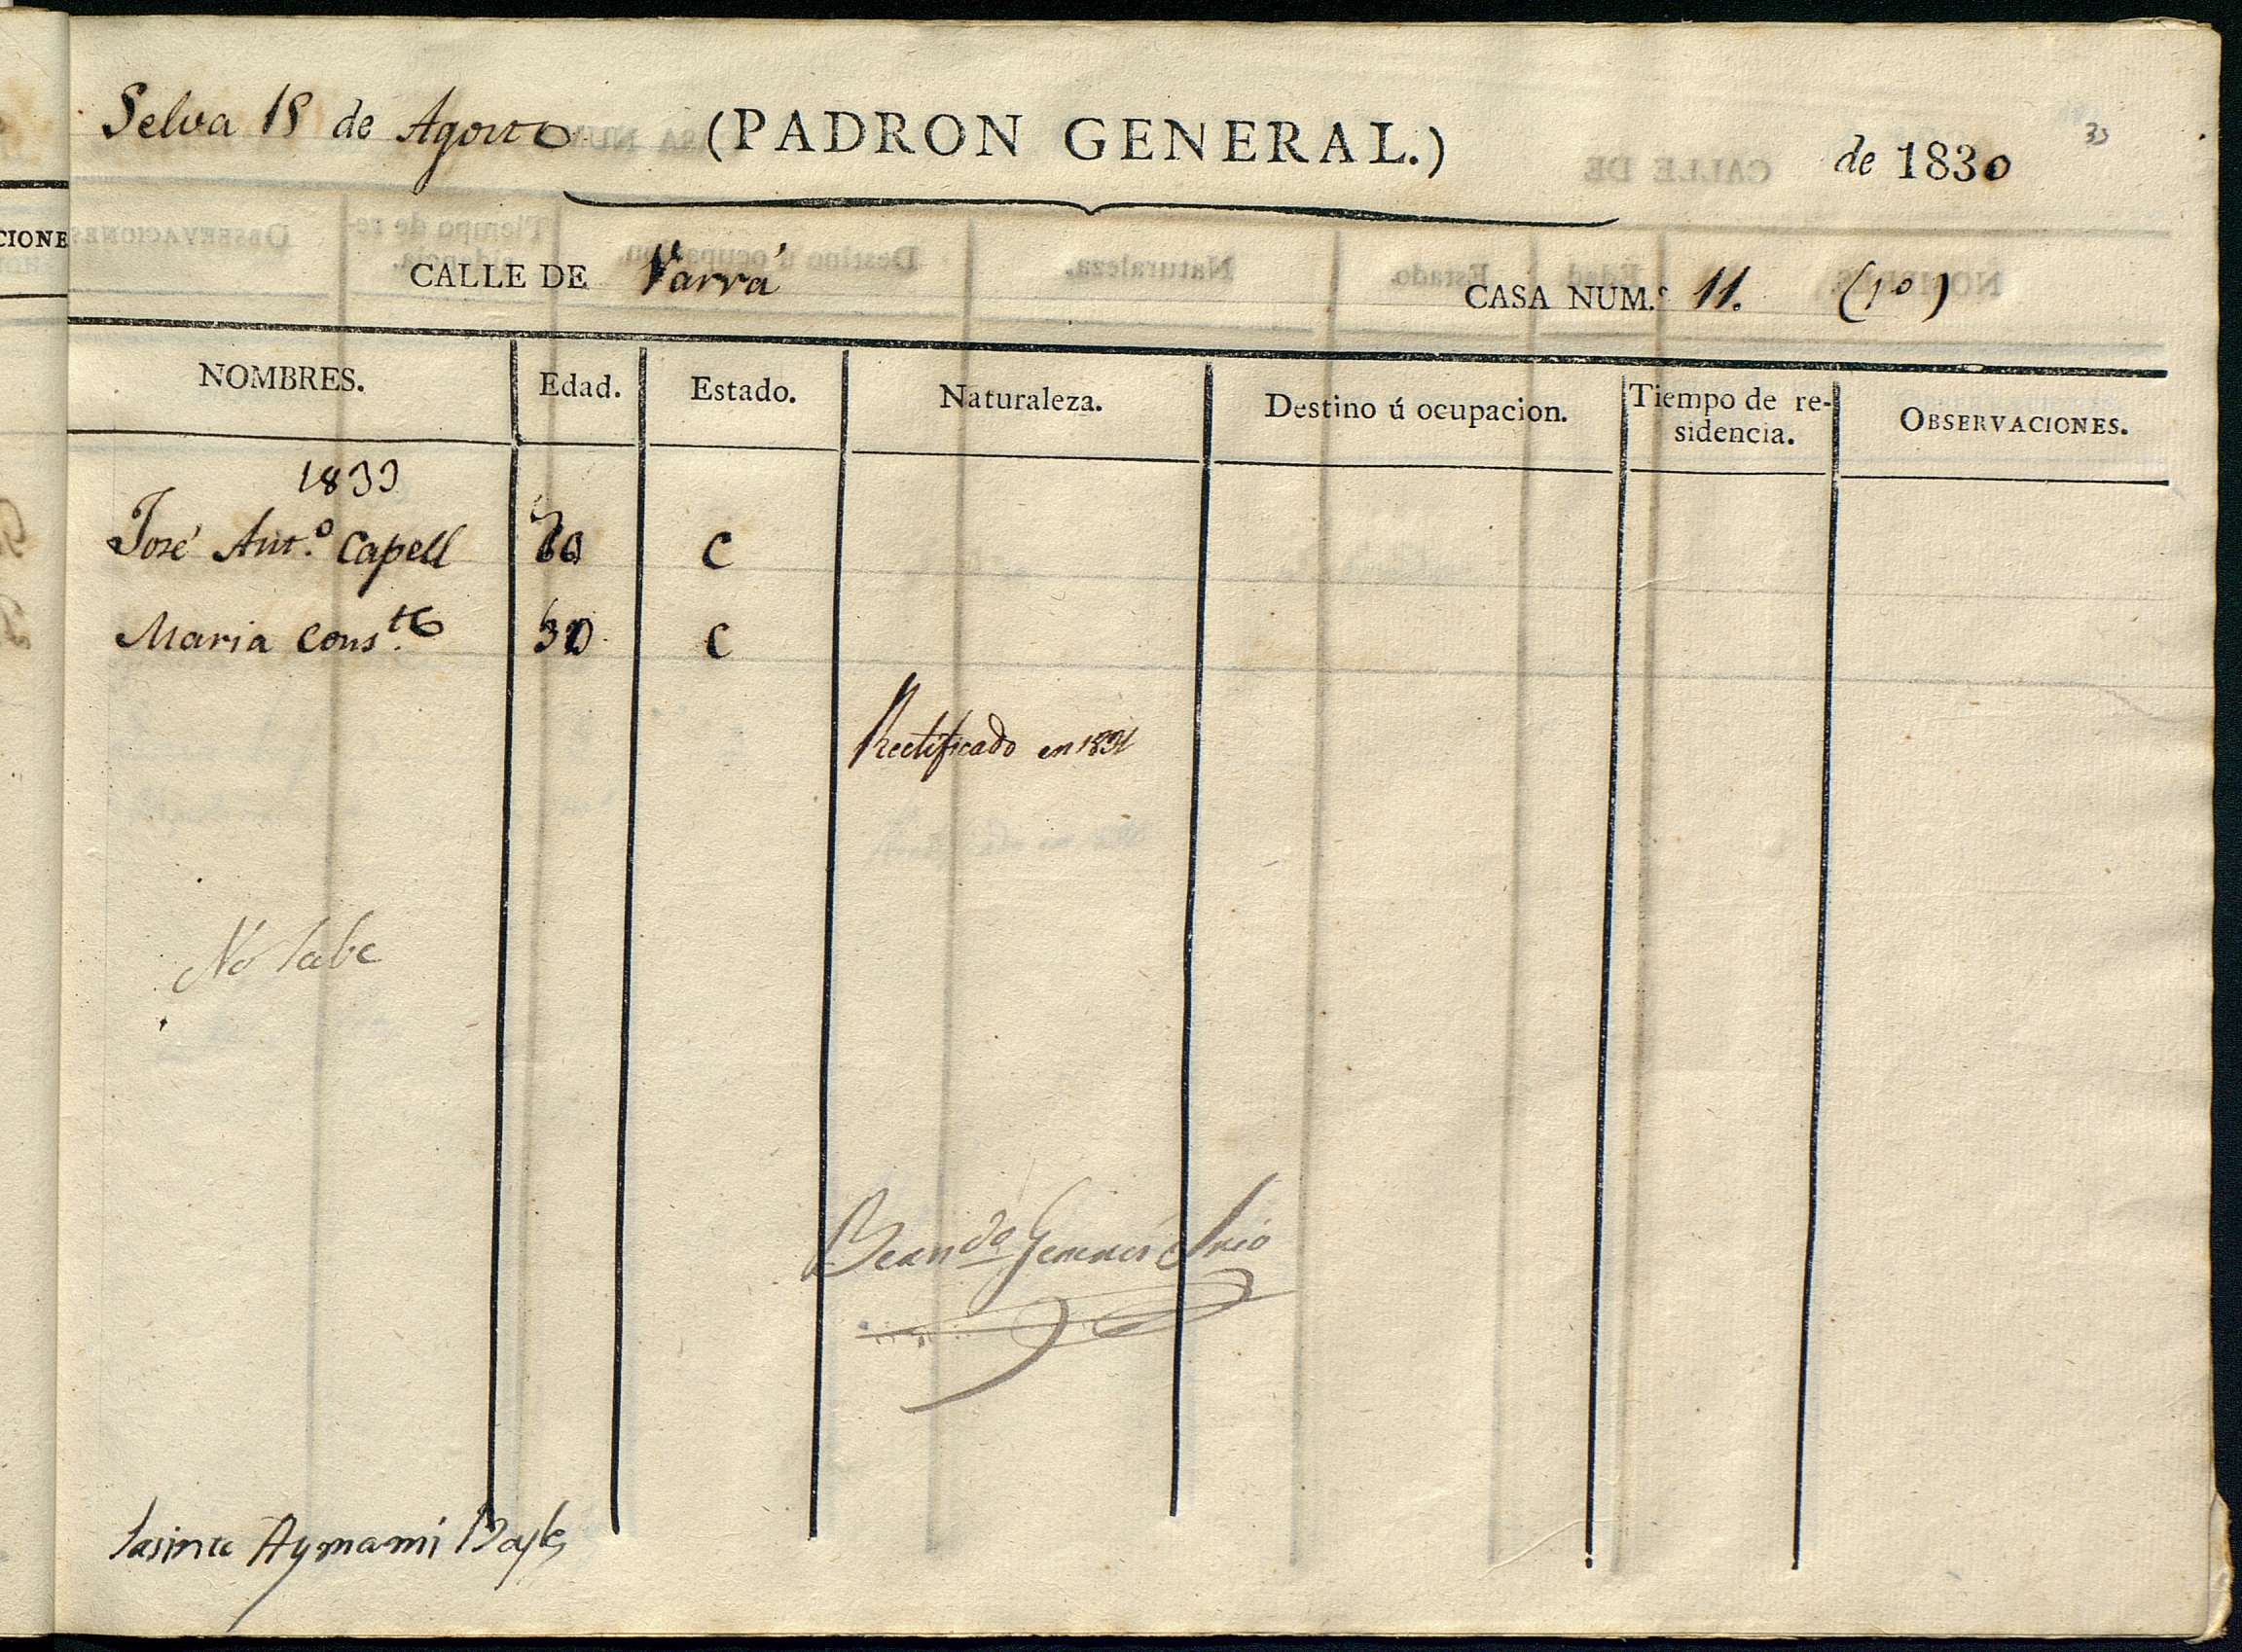 Selva 18 de Agosto (PADRON GENERAL.) de 1830
CALLE DE Varrá CASA NUM.º 11. (1º)
NOMBRES. Edad. Estado. Naturaleza. Destino ú ocupacion. Tiempo de re-
sidencia. OBSERVACIONES.
CIONE
1833
José Ant.º Capell C
Maria Cons.te C
Rectificado en 1831
No sabe
Aymamí Bayle